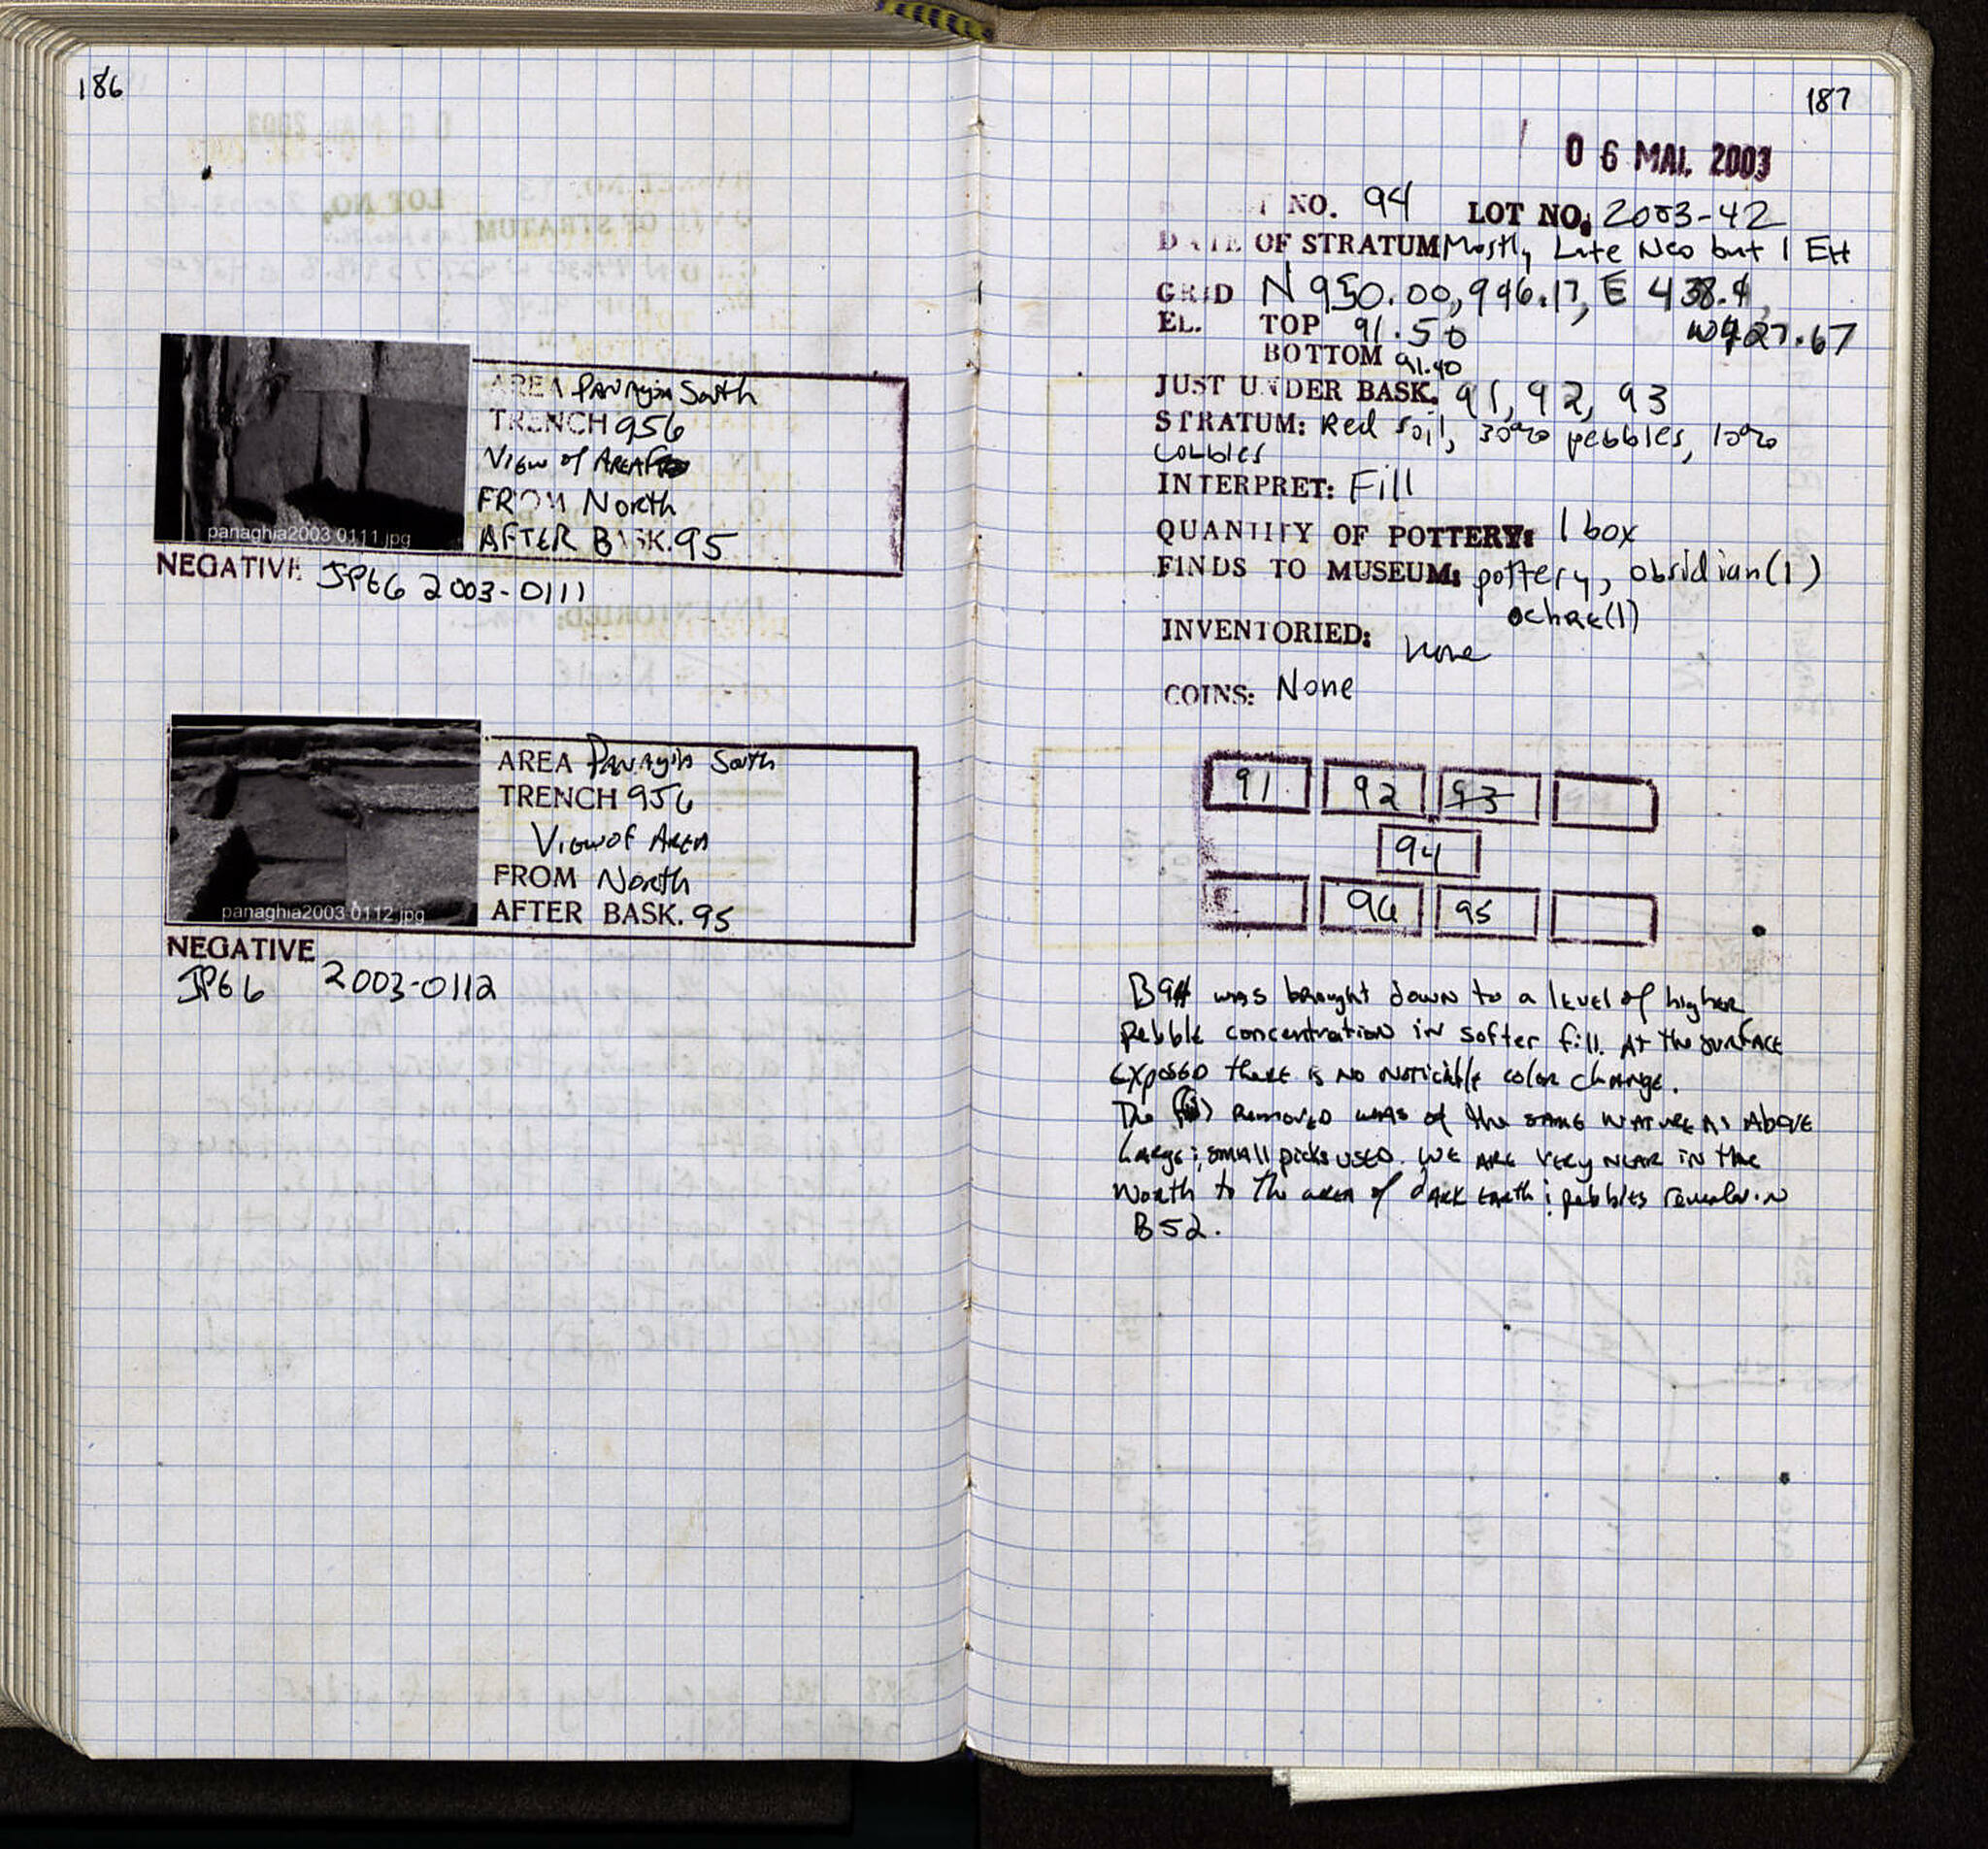 186
panaghia2003 0111.jpg
AREA Panayia South
TRENCH 956
View of AREA
FROM North
AFTER BASK. 95
NEGATIVE JPEG 2003-0111
panaghia2003 0112.jpg
AREA Panayia South
TRENCH 956
View of Area
FROM North
AFTER BASK. 95
NEGATIVE
JPEG 2003-0112
187
06 MAI. 2003
NO. 94 LOT NO. 2003-42
DATE OF STRATUM Mostly Late Neo but 1 EH
GRID N 950.00, 946.17, E 438.4,
W427.67
EL. TOP 91.50
BOTTOM 91.40
JUST UNDER BASK. 91, 92, 93
STRATUM: Red soil, 30% pebbles, 10%
cobbles
INTERPRET: Fill
QUANTITY OF POTTERY: 1 box
FINDS TO MUSEUM: pottery, obsidian(1)
ochre(1)
INVENTORIED: none
COINS: None
91 92 93
94
96 95
B94 was brought down to a level of higher
pebble concentration in softer fill. At the surface
exposed there is no noticable color change.
The removed was of the same nature as above
Large; small picks used. We are very near in the
North to the area of dark earth; pebbles revealed in
B52.